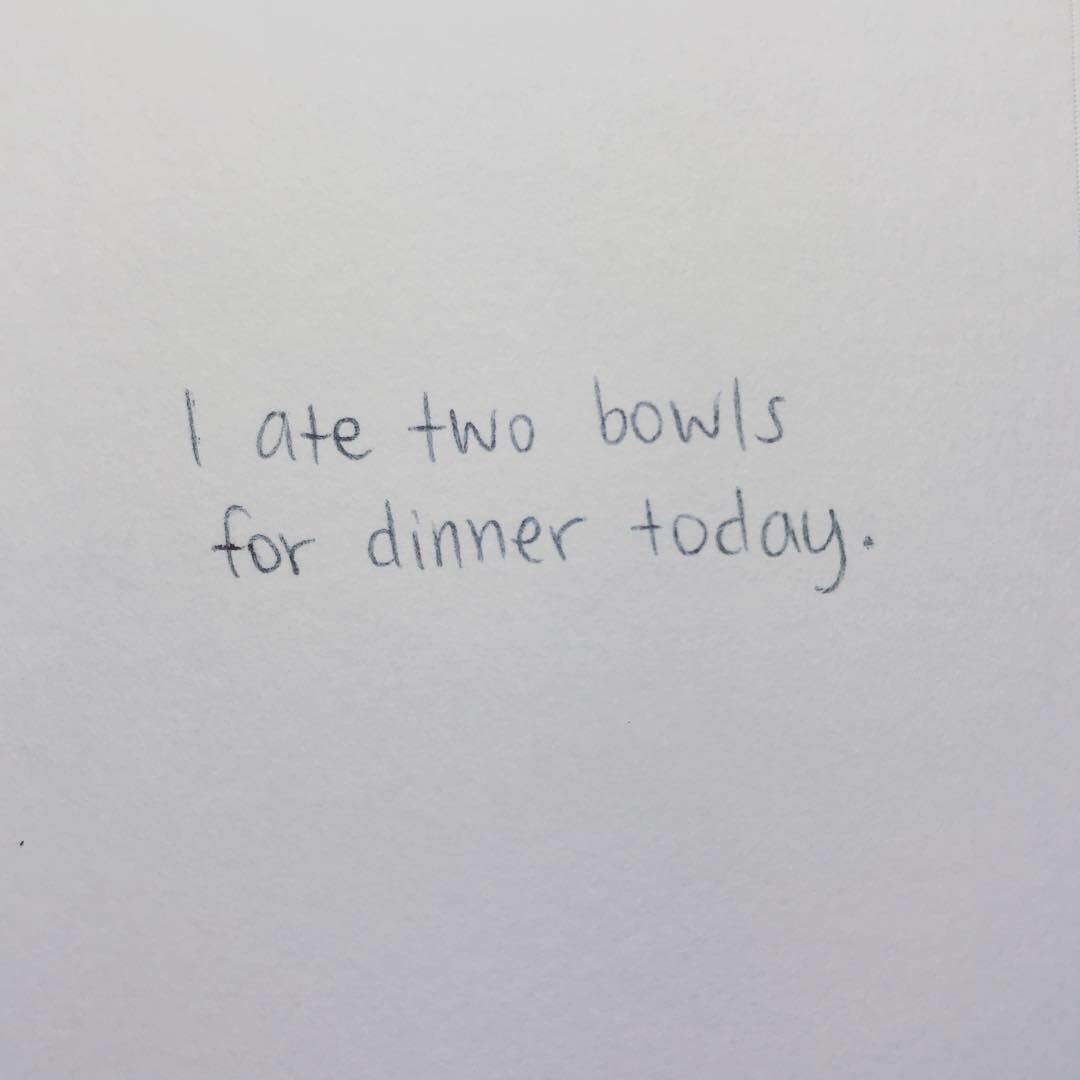 I ate two bowls
for dinner today.